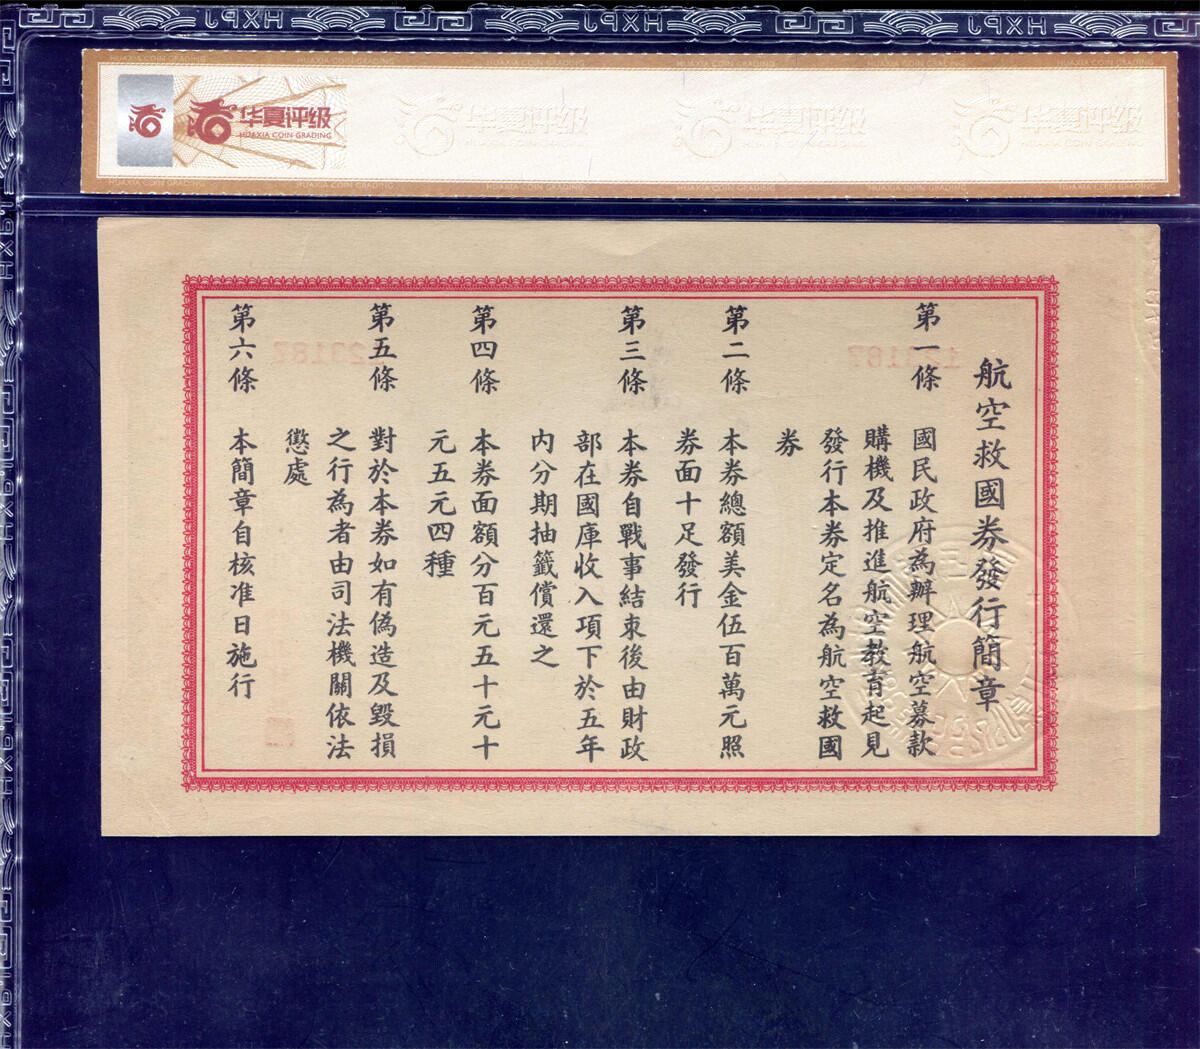 华夏评级
HUAXIA COIN GRADING
航空救國券發行簡章
第一條 國民政府為辦理航空募款
購機及推進航空教育起見
發行本券定名為航空救國
券
第二條 本券總額美金伍百萬元照
券面十足發行
第三條 本券自戰事結束後由財政
部在國庫收入項下於五年
內分期抽籤償還之
第四條 本券面額分百元五十元十
元五元四種
第五條 對於本券如有偽造及毀損
之行為者由司法機關依法
懲處
第六條 本簡章自核准日施行